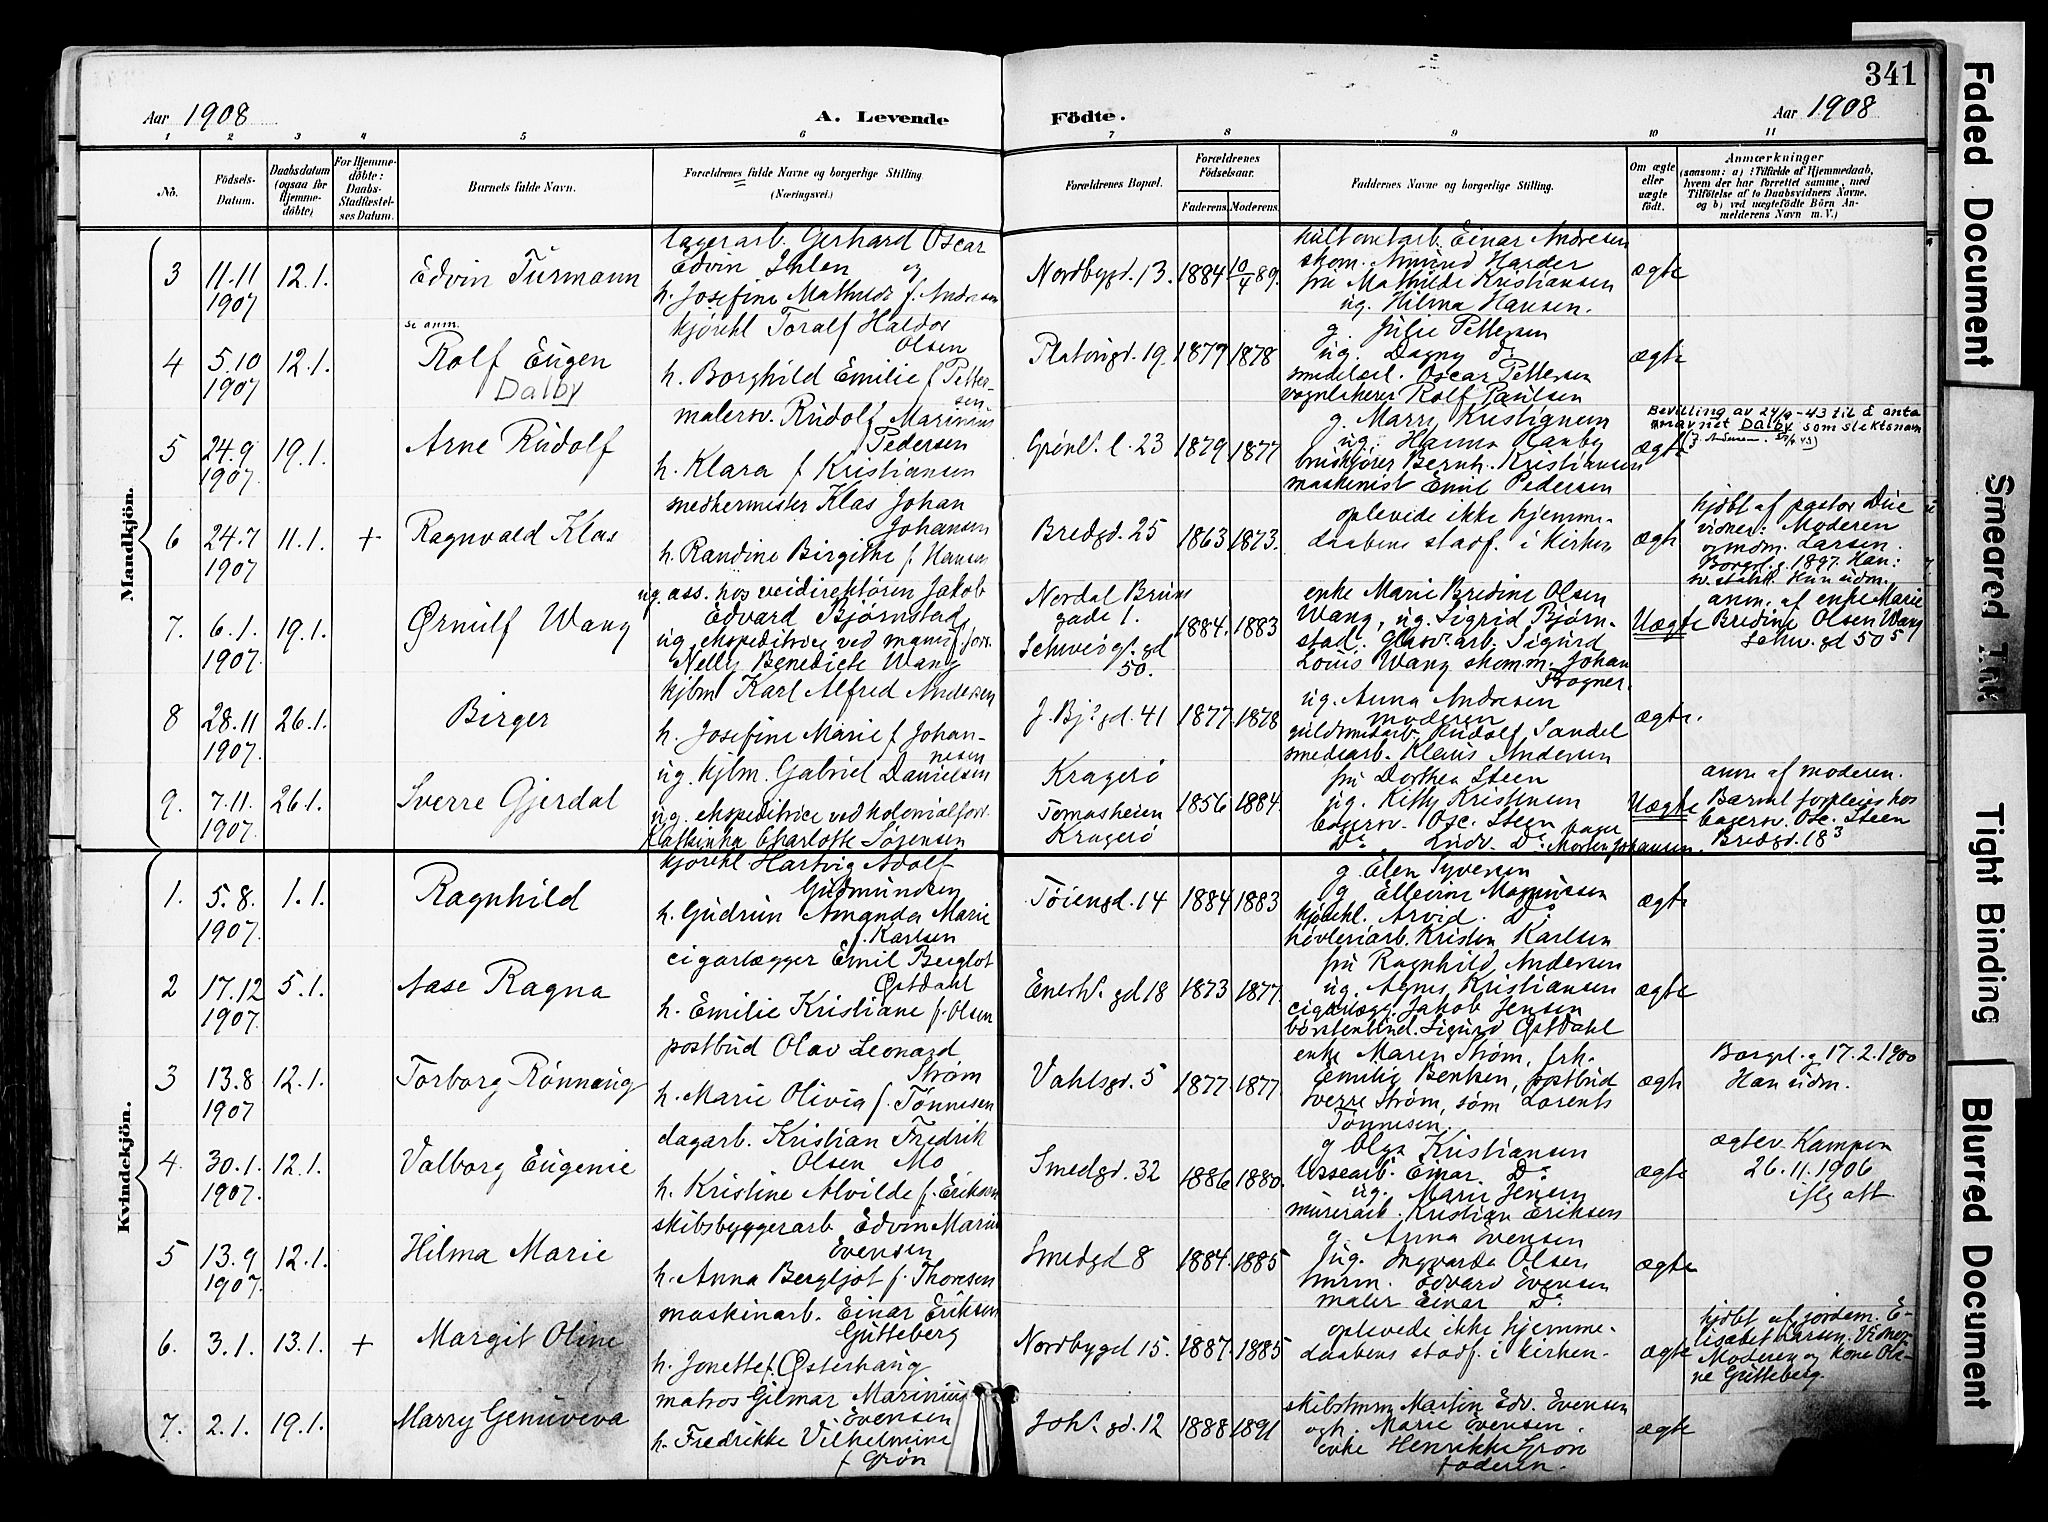 341
Aar 1908
A. Levende
Födte.
Aar 1908
1 2 3 4 5 6 7 8 9 10 11
No.
Födsels-
Datum.
Daabsdatum
(ogsaa for
Hjemme-
döbte)
For Hjemme-
döbte:
Daabs-
Stadfæstel-
ses Datum.
Barnets fulde Navn.
Forældrenes fulde Navne og borgerlige Stilling
(Næringsvei.)
Forældrenes Bopæl.
Forældrenes
Födselsaar.
Faderens. Moderens.
Faddernes Navne og borgerlige Stilling.
Om ægte
eller
uægte
födt.
Anmærkninger
(saasom: a) i Tilfælde af Hjemmedaab,
hvem der har forrettet samme, med
Tilföielse af to Daabsvidners Navne,
og b) ved uægtefödte Börn An-
melderens Navn m. V.)
Mandkjön.
3
11.11
1907
12.1.
Edvin Turmann
lagerarb. Gerhard Oscar
Edvin Ihlen og
h. Josefine Mathilde f. Andresen
Nordbygd. 13.
1884
10/4 89.
Einar Andresen
skom. Amund Harder
fru Mathilde Kristiansen
ug. Hilma Hansen.
ægte
4
5.10
1907
12.1.
se anm.
Rolf Eugen
Dalby
kjørekl Toralf Haldor
Olsen
h. Borghild Emilie f Petter-
sen
Platousgd. 19.
1877
1878
g. Julie Pettersen
ug. Dagny do
smedelærl. Oscar Pettersen
Rolf Paulsen
ægte
5
24.9
1907
19.1.
Arne Rudolf
malersv. Rudolf Marinius
Pedersen
h. Klara f Kristiansen
Grønl. l. 23
1879
1877
g. Marry Kristiansen
ug. Hanna Ranby
bruskjører Bernh. Kristiansen
maskinist Emil Pedersen
ægte
Bevilling av 24/9-43 til å anta
navnet Dalby som slektsnavn
6
24.7
1907
11.1.
+
Ragnvald Klas
Klas Johan
Johansen
h. Randine Birgithe f. Hansen
Bredgd. 25
1863
1873.
oplevede ikke hjemme-
daabens stadf. i kirken
ægte
hjdbt af pastor Due
vidner: Moderen
og mdm. Larsen.
Borgel. g. 1897. Han:
sv. statsk. Hun udm.
7.
6.1.
1907
19.1.
Ørnulf Wang
ug. ass. hos veidirektøren Jakob
Edvard Bjørnstad
ug. ekspeditrice ved manuf. forr.
Nelly Benedicte Wang
Nordal Bruns
gade 1.
Schweigs. gd
50.
1884.
1883
enke Marie Bredine Olsen
Wang, ug. Sigrid Bjørn-
stad, glasv. arb. Sigurd
Louis Wang skomm. Johan
Frogner.
Uægte
anm. af enke Marie
Bredine Olsen Wang
Schw. gd 50 5
8
28.11
1907
26.1.
Birger
kjbm Karl Alfred Andersen
h. Josefine Marie f Johan-
nesen
J. Bj. gd. 41
1877.
1878
ug. Anna Andresen
moderen
guldsmedarb. Rudolf Sandel
smedearb. Klaus Andersen
ægte.
9.
7.11.
1907
26.1.
Sverre Gjerdal
ug. kjbm. Gabriel Danielsen
ug. ekspeditrice ved kolonialforr.
Kathinka Charlotte Sørensen
Kragerø
Tomasheien
Kragerø
1856
1884.
fru Dorthea Steen
ug. Kitty Kristensen
bagersv. Osc. Steen
Do Ludv. Do bager Morten Johansen.
Uægte
anm af moderen.
Barnet forpleies hos
bagersv. Osc. Steen
Bredgd. 18 3
Kvindekjön.
1.
5.8.
1907.
1.1.
Ragnhild
kjørekl Hartvig Adolf
Gudmundsen
h. Gudrun Amanda Marie
f. Karlsen
Tøiengd. 14
1884
1883
g. Elen Syversen
g Ellevine Magnussen
kjørekl. Arvid. Do
høvleriarb. Kristen Karlsen
ægte
2
17.12
1907
5.1.
Aase Ragna
cigarlægger Emil Bergtot
Østdahl
h. Emilie Kristiane f. Olsen
Enerh. gd 18
1873
1877.
fru Ragnhild Andersen
ug. Agnes Kristiansen
cigarlægg. Jakob Jensen
børstenbind. Sigurd Østdahl
ægte
3
13.8
1907
12.1.
Torborg Rønnaug
postbud Olav Leonard
Strøm
h. Marie Olivia f. Tønnesen
Vahlsgd. 5
1877
1877.
enke Maren Strøm, frk.
Emilie Bentsen, postbud
Sverre Strøm, søm Lorents
Tønnesen.
ægte
Borgel. g 17.2.1900
Han udm.
4.
30.1.
1907.
12.1.
Valborg Eugenie
dagarb. Kristian Fredrik
Olsen Mo
h. Kristine Alvilde f. Eriksen
Smedgd. 32
1886
1880.
g Olga Kristiansen
Einar Do
ug. Marie Jensen
murerarb. Kristian Eriksen
ægte
ægtev. Kampen
26.11.1906
iflg att
5
13.9
1907.
12.1.
Hilma Marie
skibsbyggerarb Edvin Marius
Evensen
h. Anna Bergljot f. Thoresen
Smedgd 8
1884.
1885
g. Anna Evensen
ug. Ingvarda Olsen
tmrm. Edvard Evensen
maler Einar Do
ægte
6.
3.1.
13.1.
+
Margit Oline
maskinarb. Einar Eriksen
Gutteberg
h. Jonette f. Østerhaug
Nordbygd 15.
1887.
1885
oplevede ikke hjemme-
daabens stadf. i kirken.
ægte
hjdbt af jordem. E-
lisabet Larsen. Vidner.
Moderen og kone Oli-
ne Gutteberg.
7.
2.1.
19.1.
Marry Genuveva
matros Gilmar Marinius
Evensen
h. Fredrikke Vilhelmine
f Grøn
Joh. gd. 12
1888
1891
skibstmrm Martin Edv. Evensen
og h. Marie Evensen.
enke Henrikke Grøn
faderen.
ægte
Faded Document
Smeared Ink
Tight Binding
Blurred Document